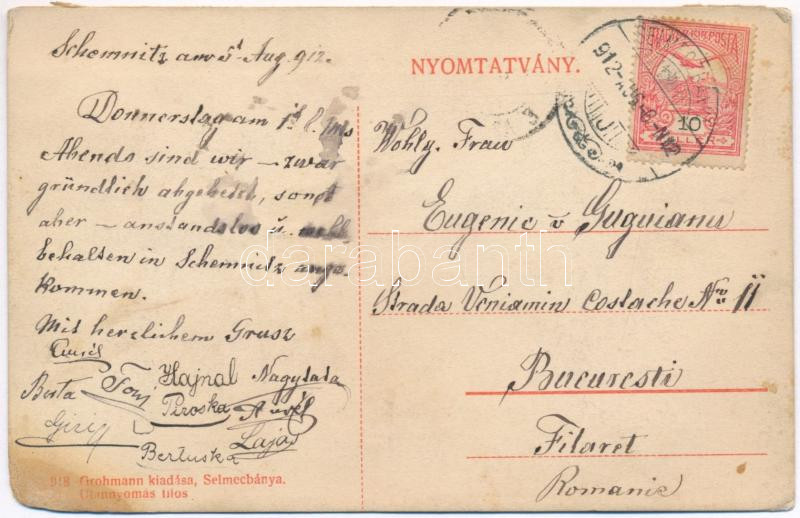 Schemnitz am 5t Aug. 912.
Donnerstag am 1t l. Ms
Abends sind wir – zwar
gründlich abgehetzt, sonst
aber – anstandslos u. wohl
behalten in Schemnitz ange-
kommen.
Mit herzlichem Grusz
Berta
Toni
Hajnal
Nagytata
Piroska
Aurél
Bertuska
Lajos
918 Grohmann kiadása, Selmecbánya.
Utánnyomás tilos
NYOMTATVÁNY.
MAGYAR KIR. POSTA
10
Wohlg. Frau
Eugenie v Guguianu
Strada Veniamin Costache Nro 11
Bucuresti
Filaret
Romanie
darabanth